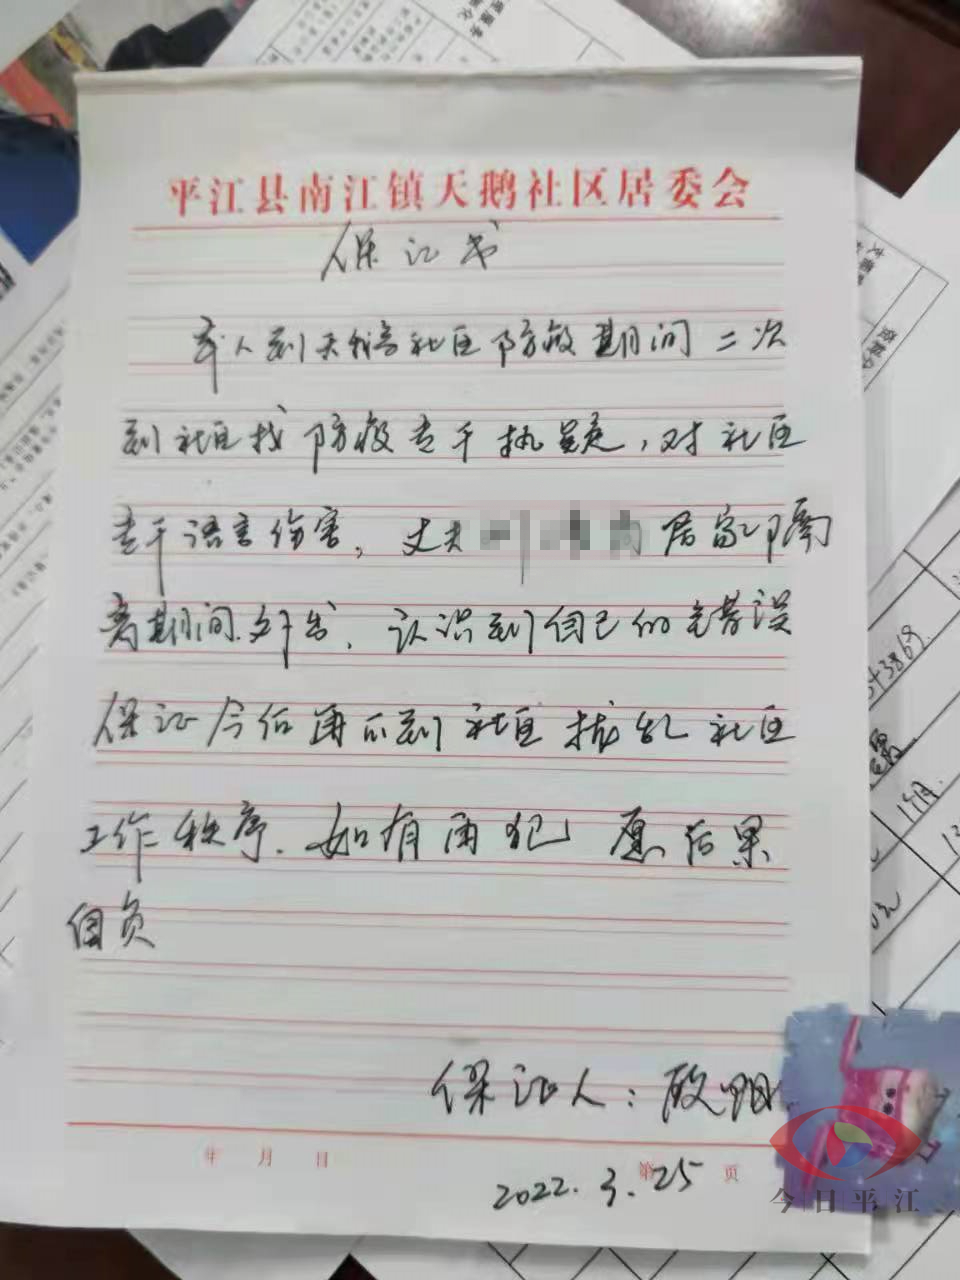 平江县南江镇天鹅社区居委会
保证书
本人到天鹅社区防疫期间二次
到社区找防疫专干执疑，对社区
专干语言伤害，丈夫 居家隔
离期间.外出，认识到自己的错误
保证今后再不到社区扰乱社区
工作秩序.如有再犯 愿后果
自负
保证人：殷
年 月 日
第 页
2022.3.25
今日平江